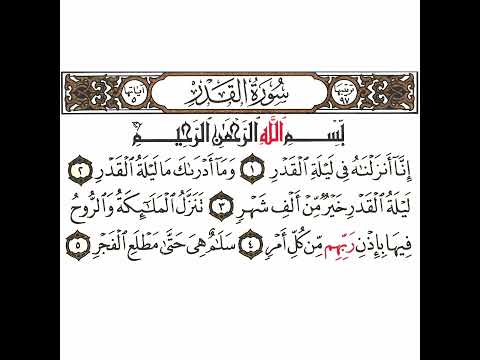 ترتيبها ٩٧ سُورَةُ القَدْرِ آياتها ٥
بِسْمِ اللَّهِ الرَّحْمَٰنِ الرَّحِيمِ
إِنَّا أَنزَلْنَٰهُ فِى لَيْلَةِ الْقَدْرِ ١ وَمَا أَدْرَىٰكَ مَا لَيْلَةُ الْقَدْرِ ٢
لَيْلَةُ الْقَدْرِ خَيْرٌ مِّنْ أَلْفِ شَهْرٍ ٣ تَنَزَّلُ الْمَلَٰٓئِكَةُ وَالرُّوحُ
فِيهَا بِإِذْنِ رَبِّهِم مِّن كُلِّ أَمْرٍ ٤ سَلَٰمٌ هِىَ حَتَّىٰ مَطْلَعِ الْفَجْرِ ٥